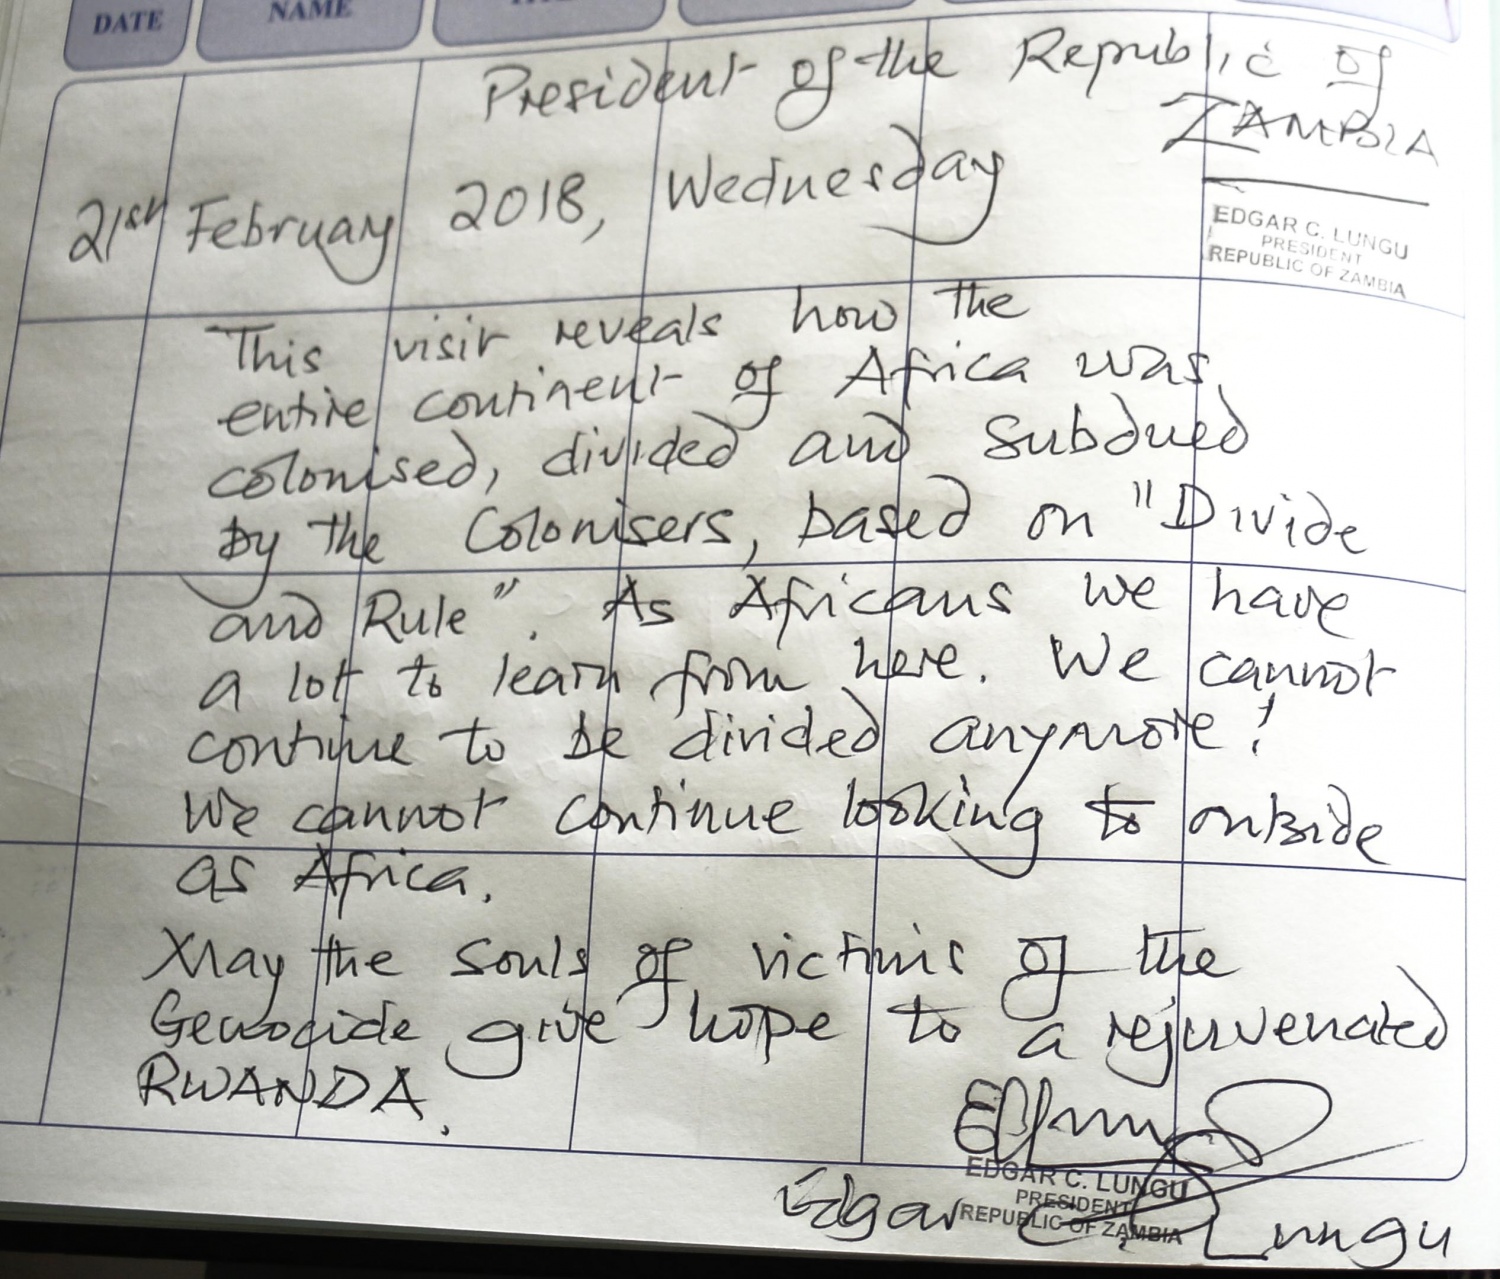 DATE NAME
President of the Republic of
ZAMBIA
21st February 2018, Wednesday
EDGAR C. LUNGU
PRESIDENT
REPUBLIC OF ZAMBIA
This visit reveals how the
entire continent of Africa was
colonised, divided and subdued
by the Colonisers, based on "Divide
and Rule". As Africans we have
a lot to learn from here. We cannot
continue to be divided anymore!
We cannot continue looking to outside
as Africa.
May the souls of victims of the
Genocide give hope to a rejuvenated
RWANDA.
EDGAR C. LUNGU
PRESIDENT
REPUBLIC OF ZAMBIA
Edgar C. Lungu